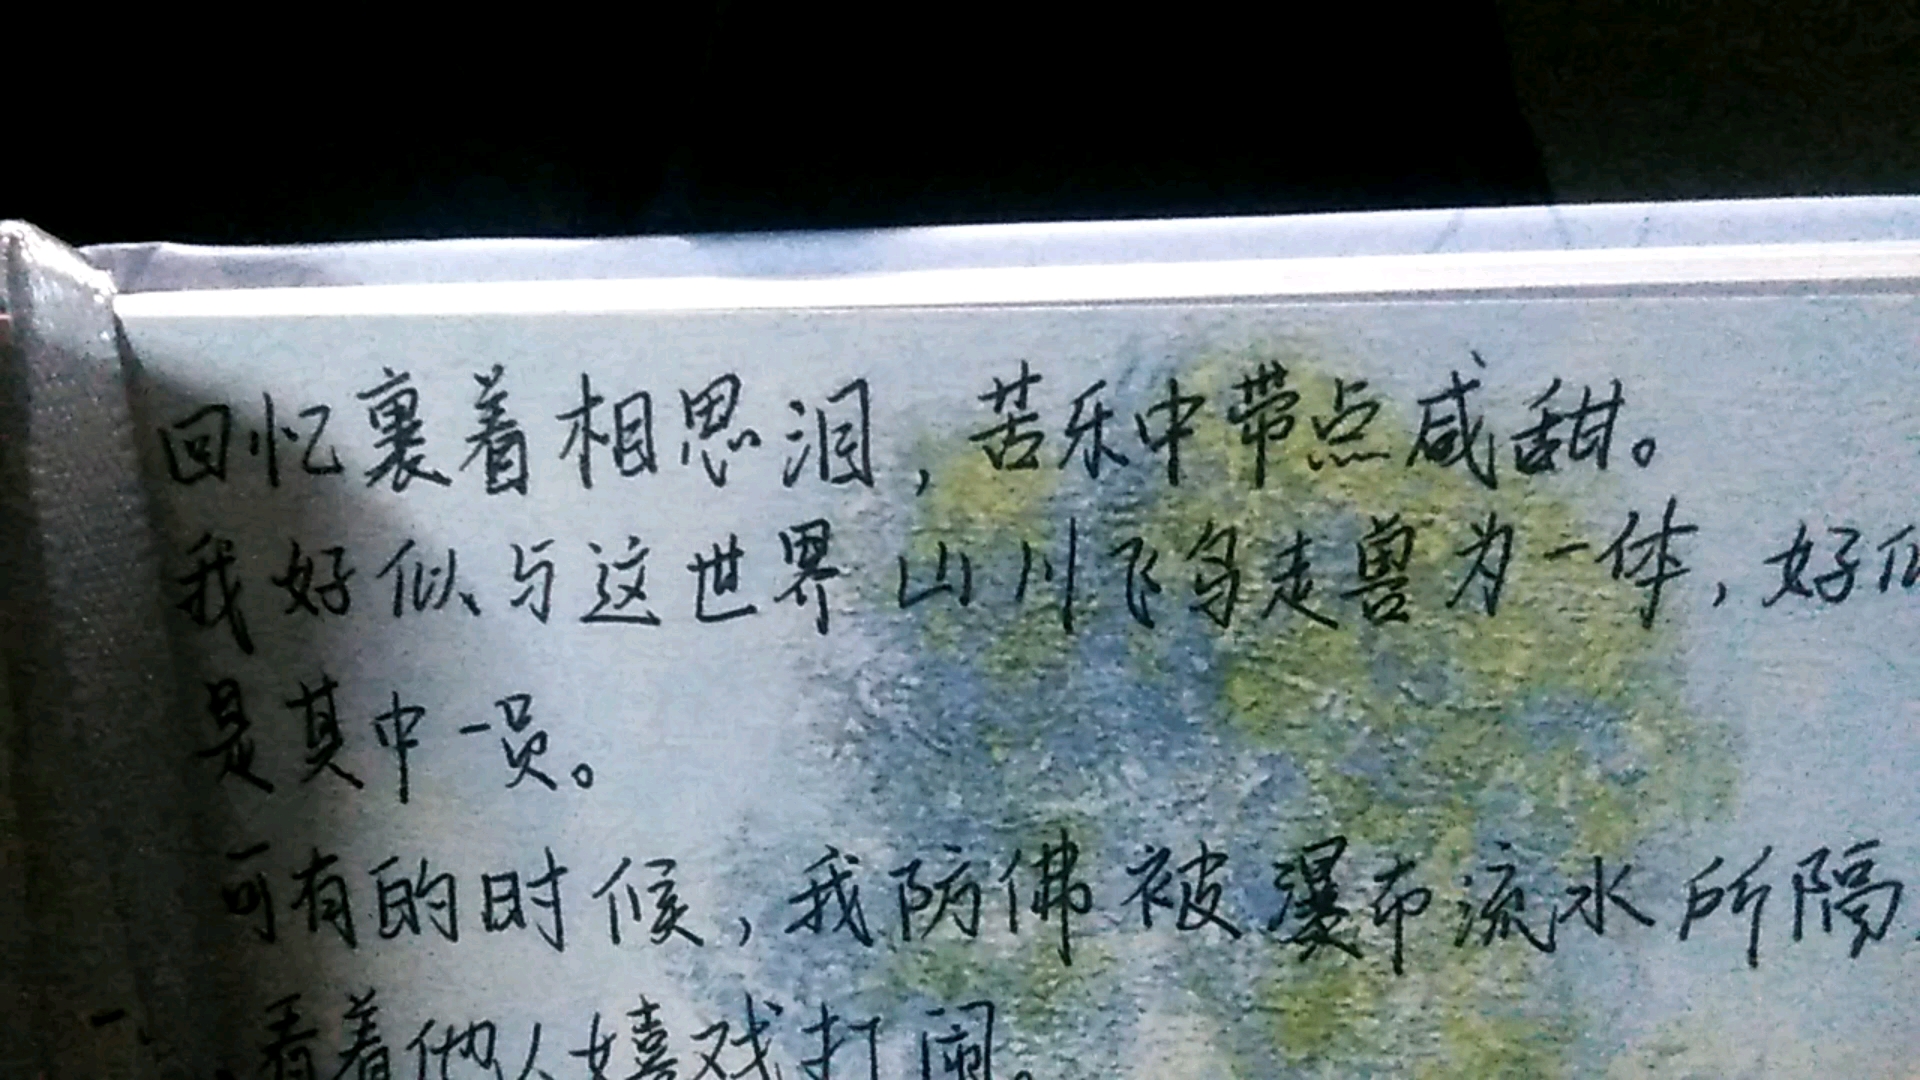 回忆裹着相思泪，苦乐中带点咸甜。
我好似与这世界山川飞鸟走兽为一体，好似
是其中一员。
可有的时候，我防佛被瀑布流水所隔，
看着他人嬉戏打闹。